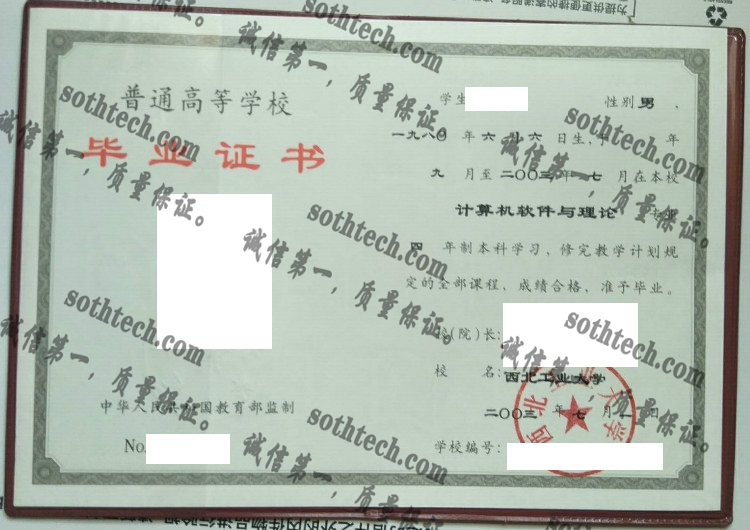 普通高等学校
毕业证书
中华人民共和国教育部监制
No.
学生 性别 男 、
一九八〇 年 六 月 廿六 日生, 年
九 月至 二〇〇三 年 七 月在本校
计算机软件与理论 专业
四 年制本科学习,修完教学计划规
定的全部课程,成绩合格,准予毕业。
校(院)长:
校 名: 西北工业大学
二〇〇三 年 七 月 一 日
学校编号:
sothtech.com
诚信第一,质量保证。
sothtech.com
诚信第一,质量保证。
sothtech.com
诚信第一,质量保证。
sothtech.com
诚信第一,质量保证。
sothtech.com
诚信第一,质量保证。
sothtech.com
诚信第一,质量保证。
sothtech.com
诚信第一,质量保证。